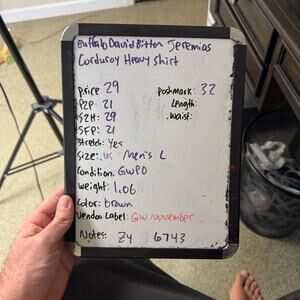 Buffalo David Bitton Jeremias
Corduroy Heavy Shirt
Price: 29
Poshmark: 32
P2P: 21
Length:
S2H: 29
Waist:
SFP: 21
Stretch: Yes
Size: US Men's L
Condition: GWPO
Weight: 1.06
Color: brown
Vendoo Label: GW November
Notes: Z4 6743